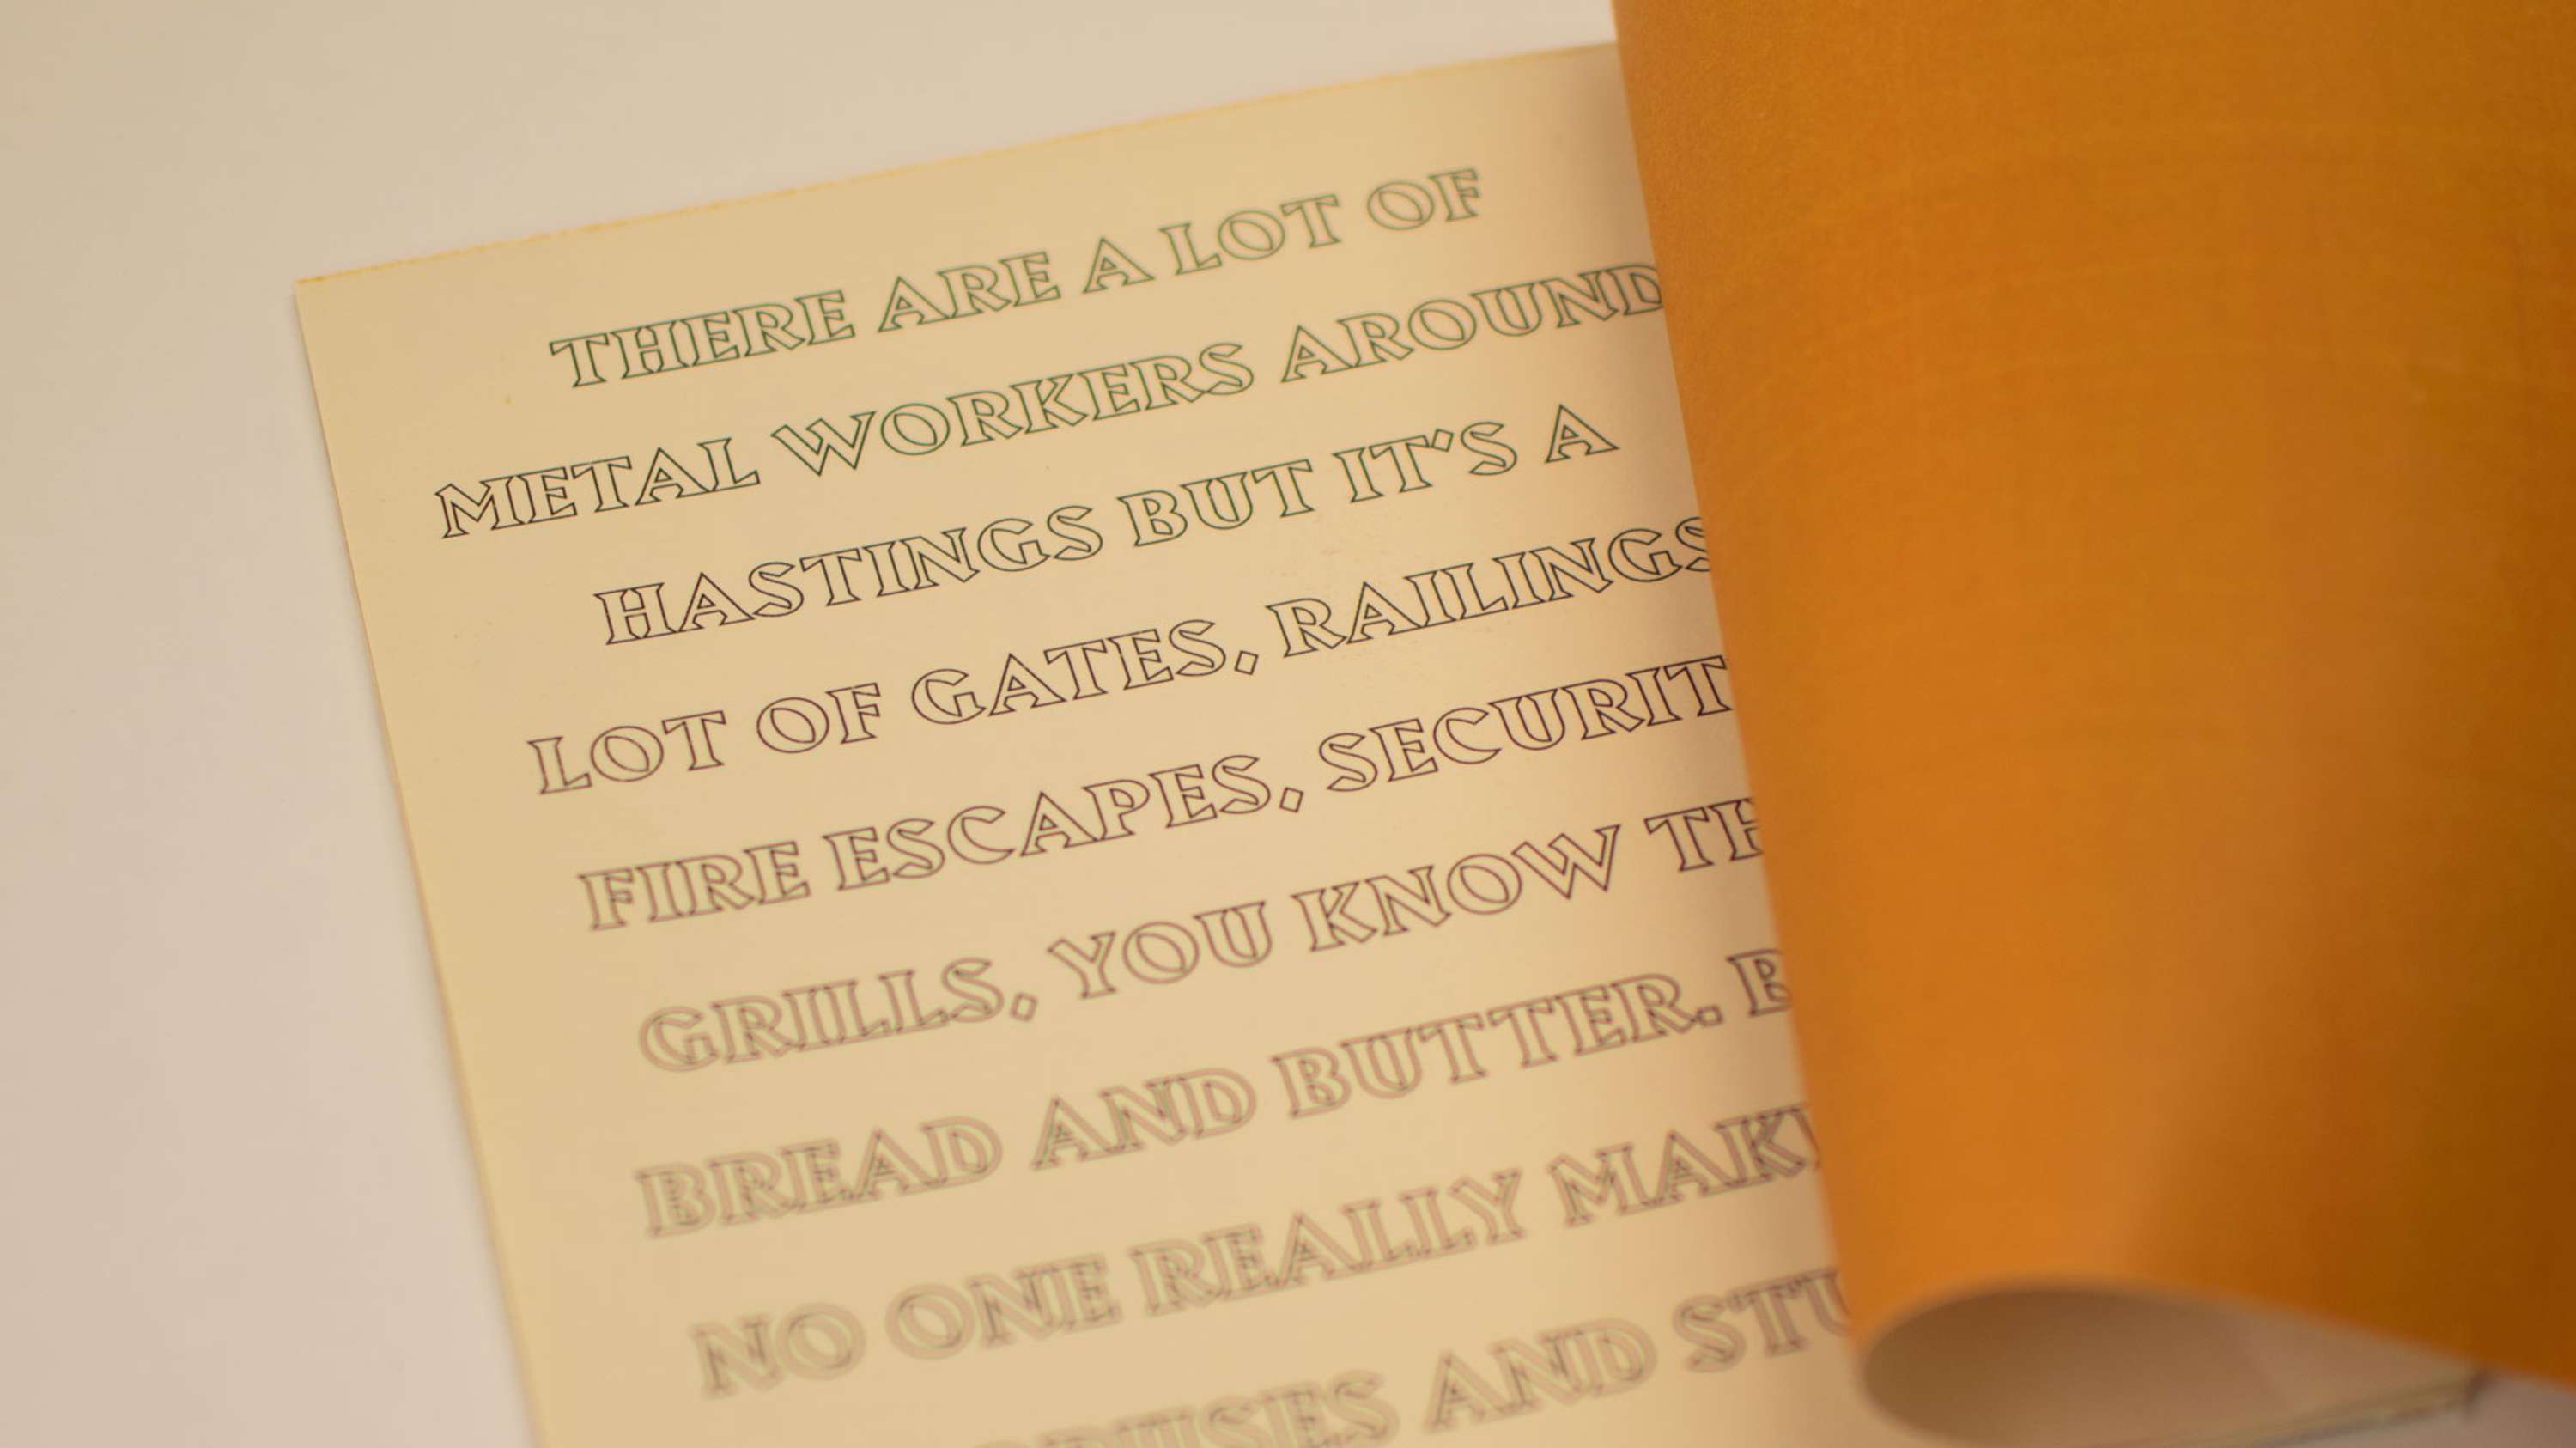 THERE ARE A LOT OF
METAL WORKERS AROUND
HASTINGS BUT IT'S A
LOT OF GATES, RAILINGS
FIRE ESCAPES, SECURIT
GRILLS, YOU KNOW TH
BREAD AND BUTTER. B
NO ONE REALLY MAK
AND STU